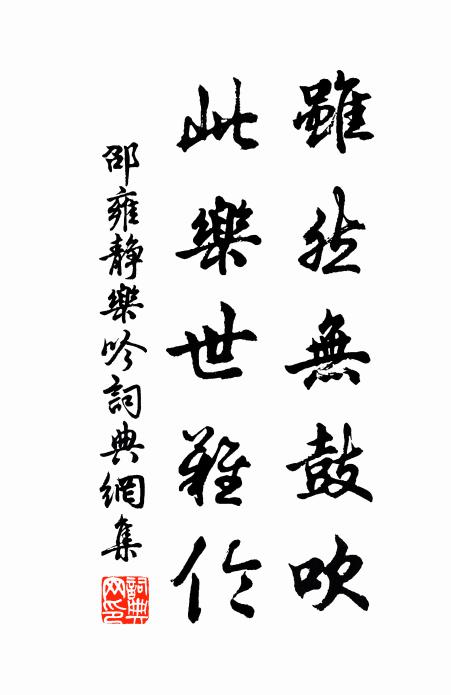 雖然無鼓吹
此樂世難伦
邵雍靜樂吟詞典網集
詞典網印